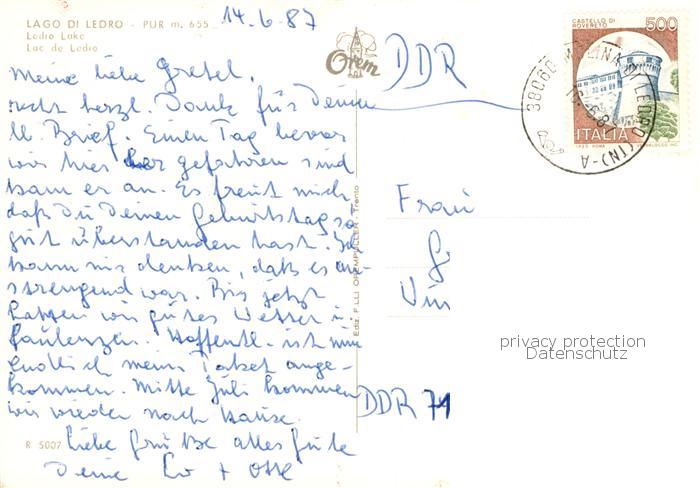 LAGO DI LEDRO - PUR m. 655
Ledro Lake
Lac de Ledro
14.6.87
Orem
DDR
CASTELLO DI ROVERETO
500
ITALIA
38060 MOLINA DI LEDRO (TN) - A
Meine liebe Gretel,
recht herzl. Dank für Deinen
lb. Brief. Einen Tag bevor
wir hier her gefahren sind
kam er an. Es freut mich
daß Du Deinen Geburtstag so
gut überstanden hast. Ich
kann mir denken, daß es an-
strengend war. Bis jetzt
hatten wir gutes Wetter z.
faulenzen. Hoffentl. ist nun
endlich mein Paket ange-
kommen. Mitte Juli kommen
wir wieder nach Hause.
Liebe Grüße alles Gute
Deine + Otto
Frau
DDR 71
Ediz. F.LLI OREMPULLER - Trento
R 5007
privacy protection
Datenschutz